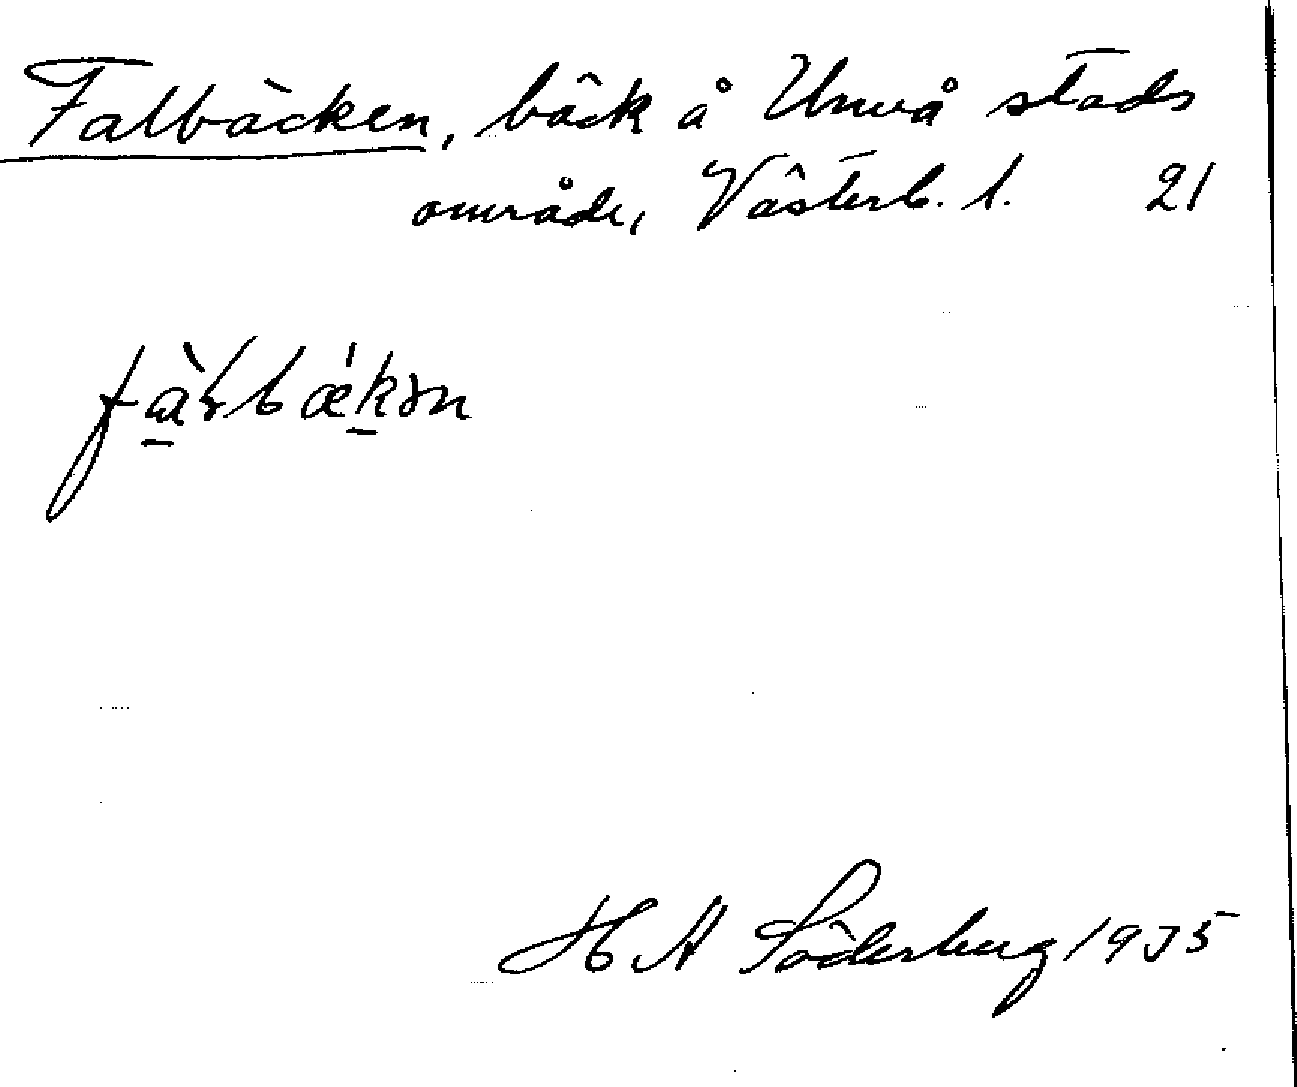 Falbäcken, bäck å Umeå stads
område, Västerb. l. 21
H A Söderberg 1935